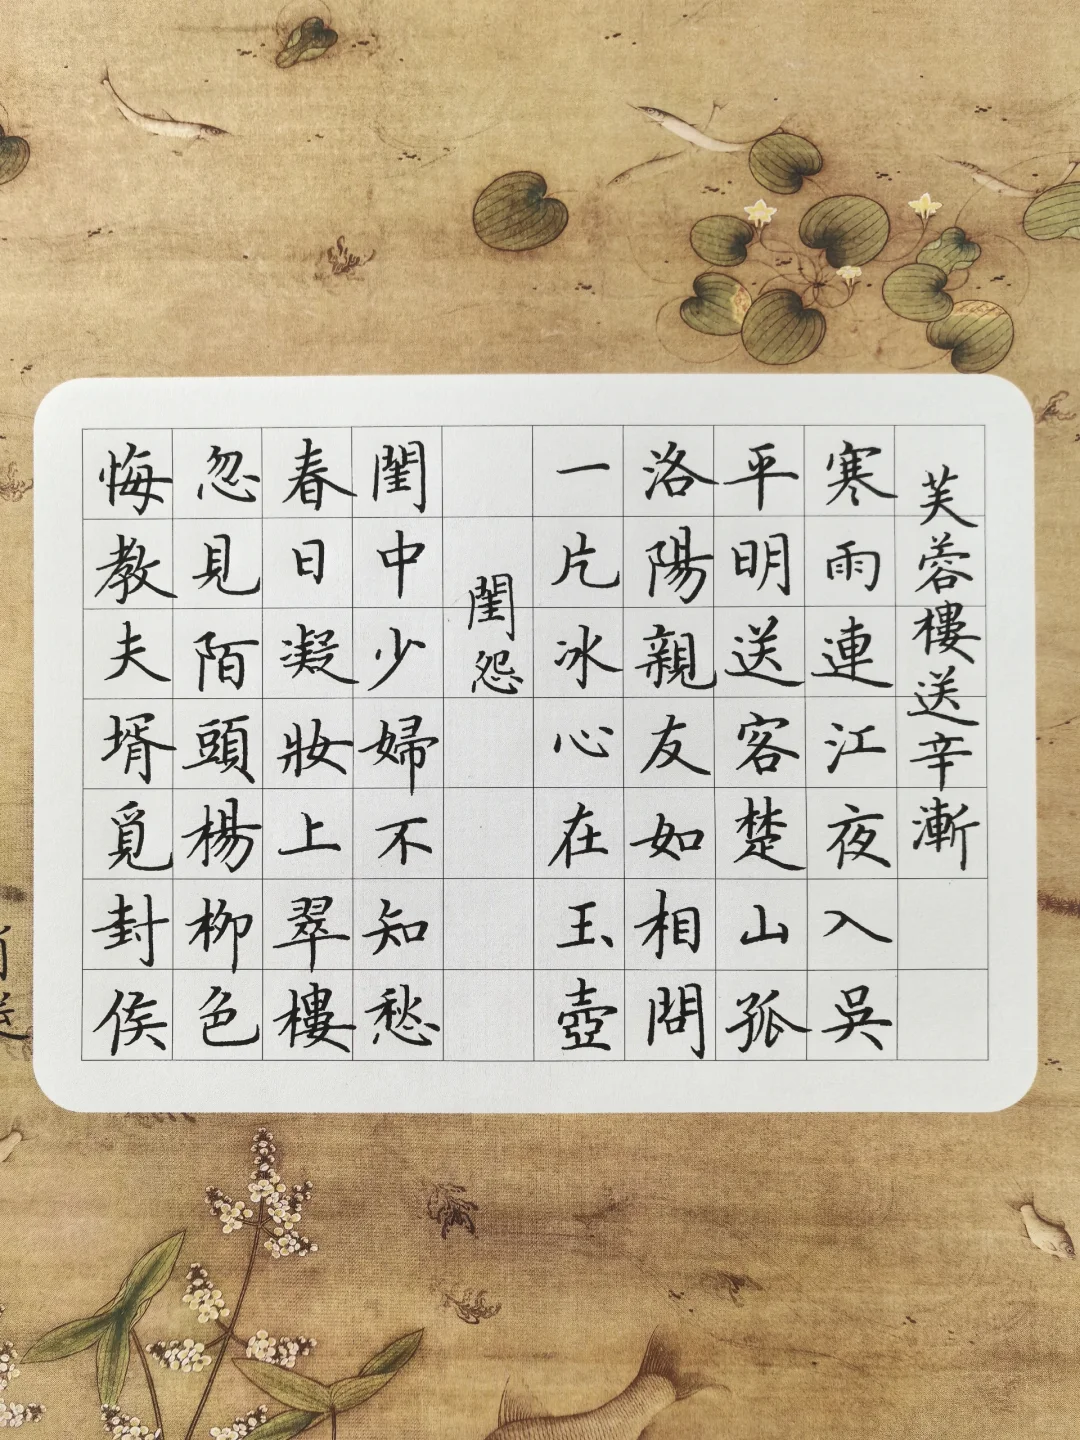 芙蓉樓送辛漸
寒雨連江夜入吳
平明送客楚山孤
洛陽親友如相問
一片冰心在玉壺
閨怨
閨中少婦不知愁
春日凝妝上翠樓
忽見陌頭楊柳色
悔教夫壻覓封侯